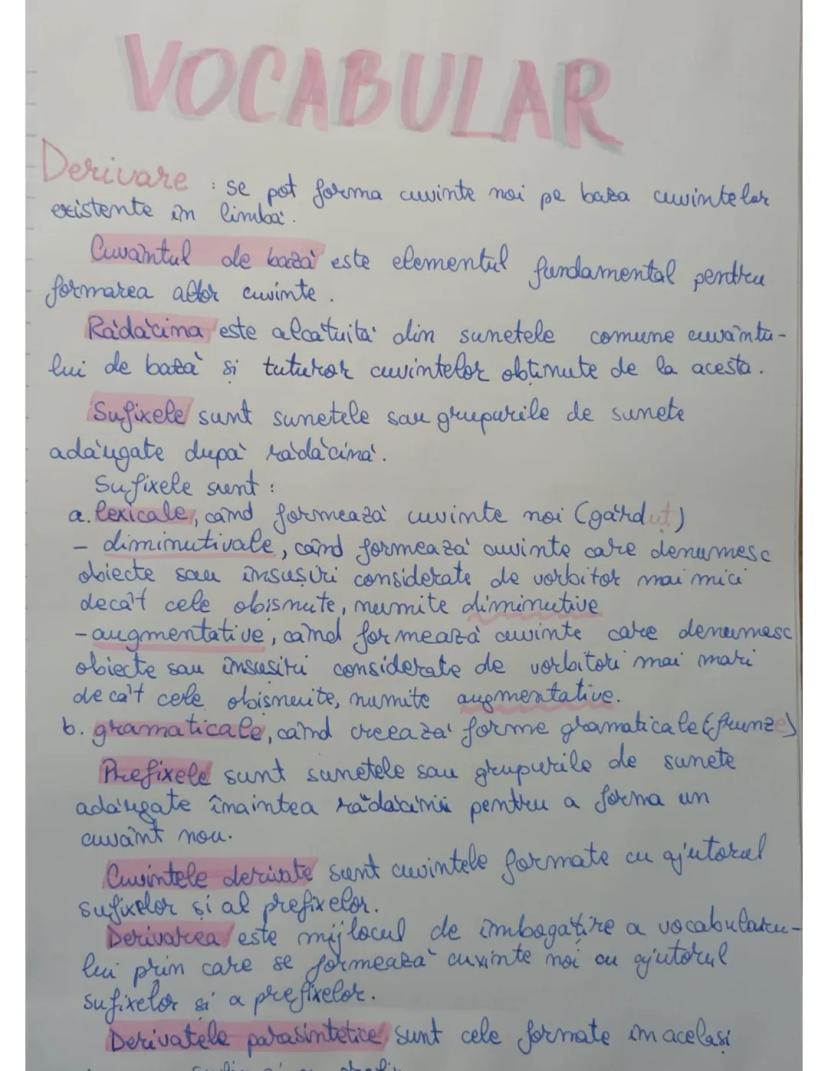 VOCABULAR
Derivare : se pot forma cuvinte noi pe baza cuvintelor
existente în limbă.
Cuvântul de bază este elementul fundamental pentru
formarea altor cuvinte.
Rădăcina este alcătuită din sunetele comune cuvântu-
lui de bază și tuturor cuvintelor obținute de la acesta.
Sufixele sunt sunetele sau grupurile de sunete
adăugate după rădăcină.
Sufixele sunt :
a. lexicale, când formează cuvinte noi (gărduț)
- diminutivale, când formează cuvinte care denumesc
obiecte sau însușiri considerate de vorbitor mai mici
decât cele obișnuite, numite diminutive
- augmentative, când formează cuvinte care denumesc
obiecte sau însușiri considerate de vorbitori mai mari
decât cele obișnuite, numite augmentative.
b. gramaticale, când creează forme gramaticale (frunze)
Prefixele sunt sunetele sau grupurile de sunete
adăugate înaintea rădăcinii pentru a forma un
cuvânt nou.
Cuvintele derivate sunt cuvintele formate cu ajutorul
sufixelor și al prefixelor.
Derivarea este mijlocul de îmbogățire a vocabularu-
lui prin care se formează cuvinte noi cu ajutorul
sufixelor și a prefixelor.
Derivatele parasintetice sunt cele formate în același